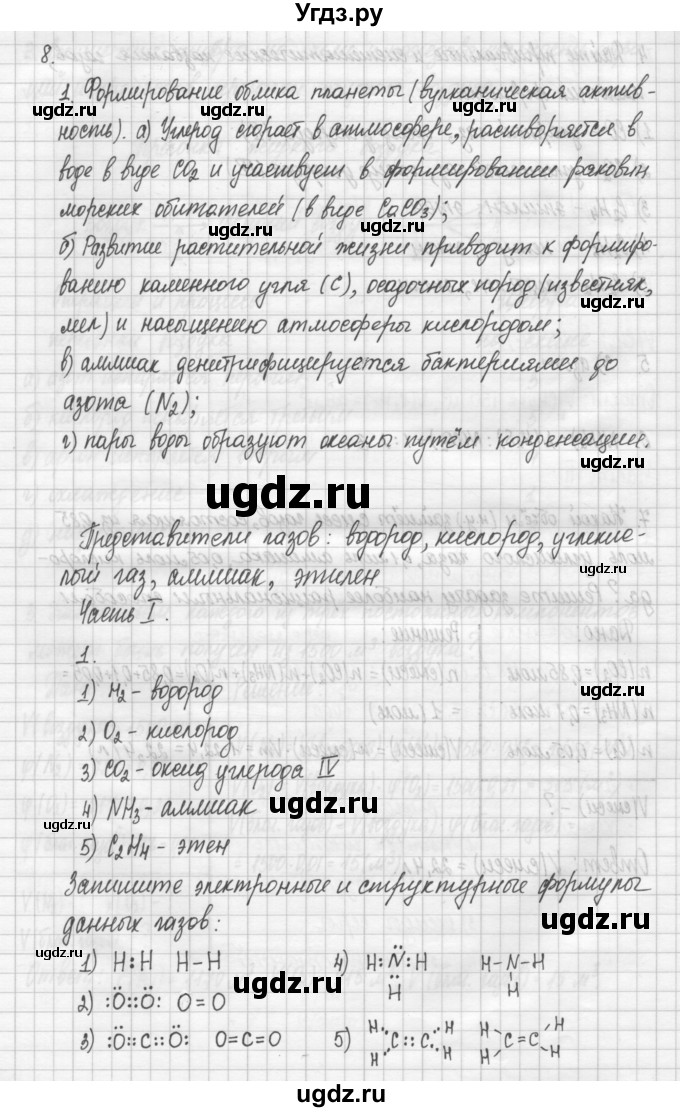 Угдз.ру
8.
1. Формирование облика планеты (вулканическая актив-
ность). а) Углерод сгорает в атмосфере, растворяется в
воде в виде CO2 и участвует в формировании раковин
морских обитателей (в виде CaCO3);
б) Развитие растительной жизни приводит к формиро-
ванию каменного угля (С), осадочных пород (известняк,
мел) и насыщению атмосферы кислородом;
в) аммиак денитрифицируется бактериями до
азота (N2);
г) пары воды образуют океаны путём конденсации.
ugdz.ru
Представители газов: водород, кислород, углекис-
лый газ, аммиак, этилен
Часть I.
1.
1) H2 - водород
2) O2 - кислород
3) CO2 - оксид углерода IV
4) NH3 - аммиак
5) C2H4 - этен
Запишите электронные и структурные формулы
данных газов:
1) H:H H-H 4) H:N:H H-N-H
H H
2) :O::O: O=O
3) :O::C::O: O=C=O 5) H H C::C H H H H C=C H H
ugdz.ru